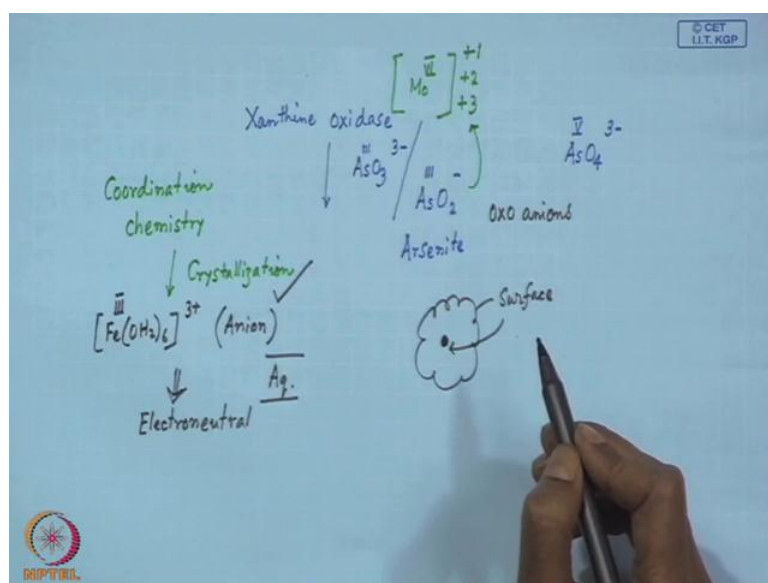 © CET
I.I.T. KGP
[Mo^VI] +1
+2
+3
Xanthine oxidase
III AsO₃ 3-
V AsO₄ 3-
III AsO₂ -
Arsenite
oxo anions
Coordination
chemistry
Crystallization
[Fe^III(OH₂)₆]³⁺ (Anion)
Aq.
Electroneutral
Surface
NPTEL